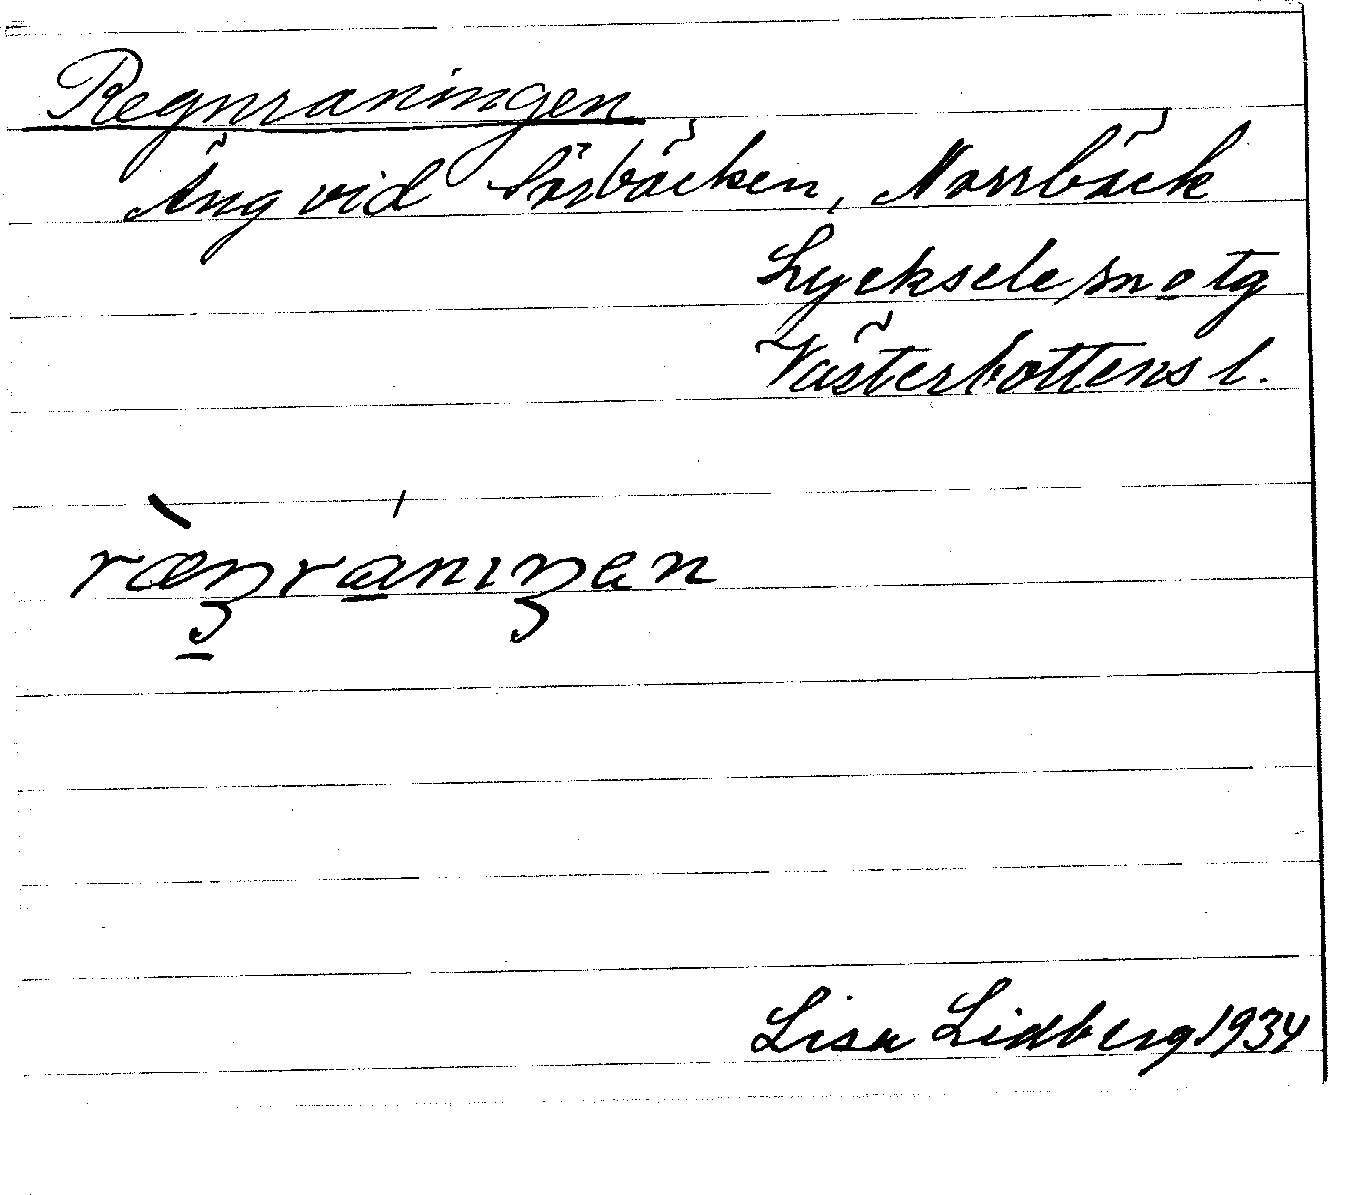 Regnraningen
Äng vid Sörbäcken, Norrbäck
Lycksele sn o tg
Västerbottens l.
ræŋranıŋen
Lisa Lidberg 1934